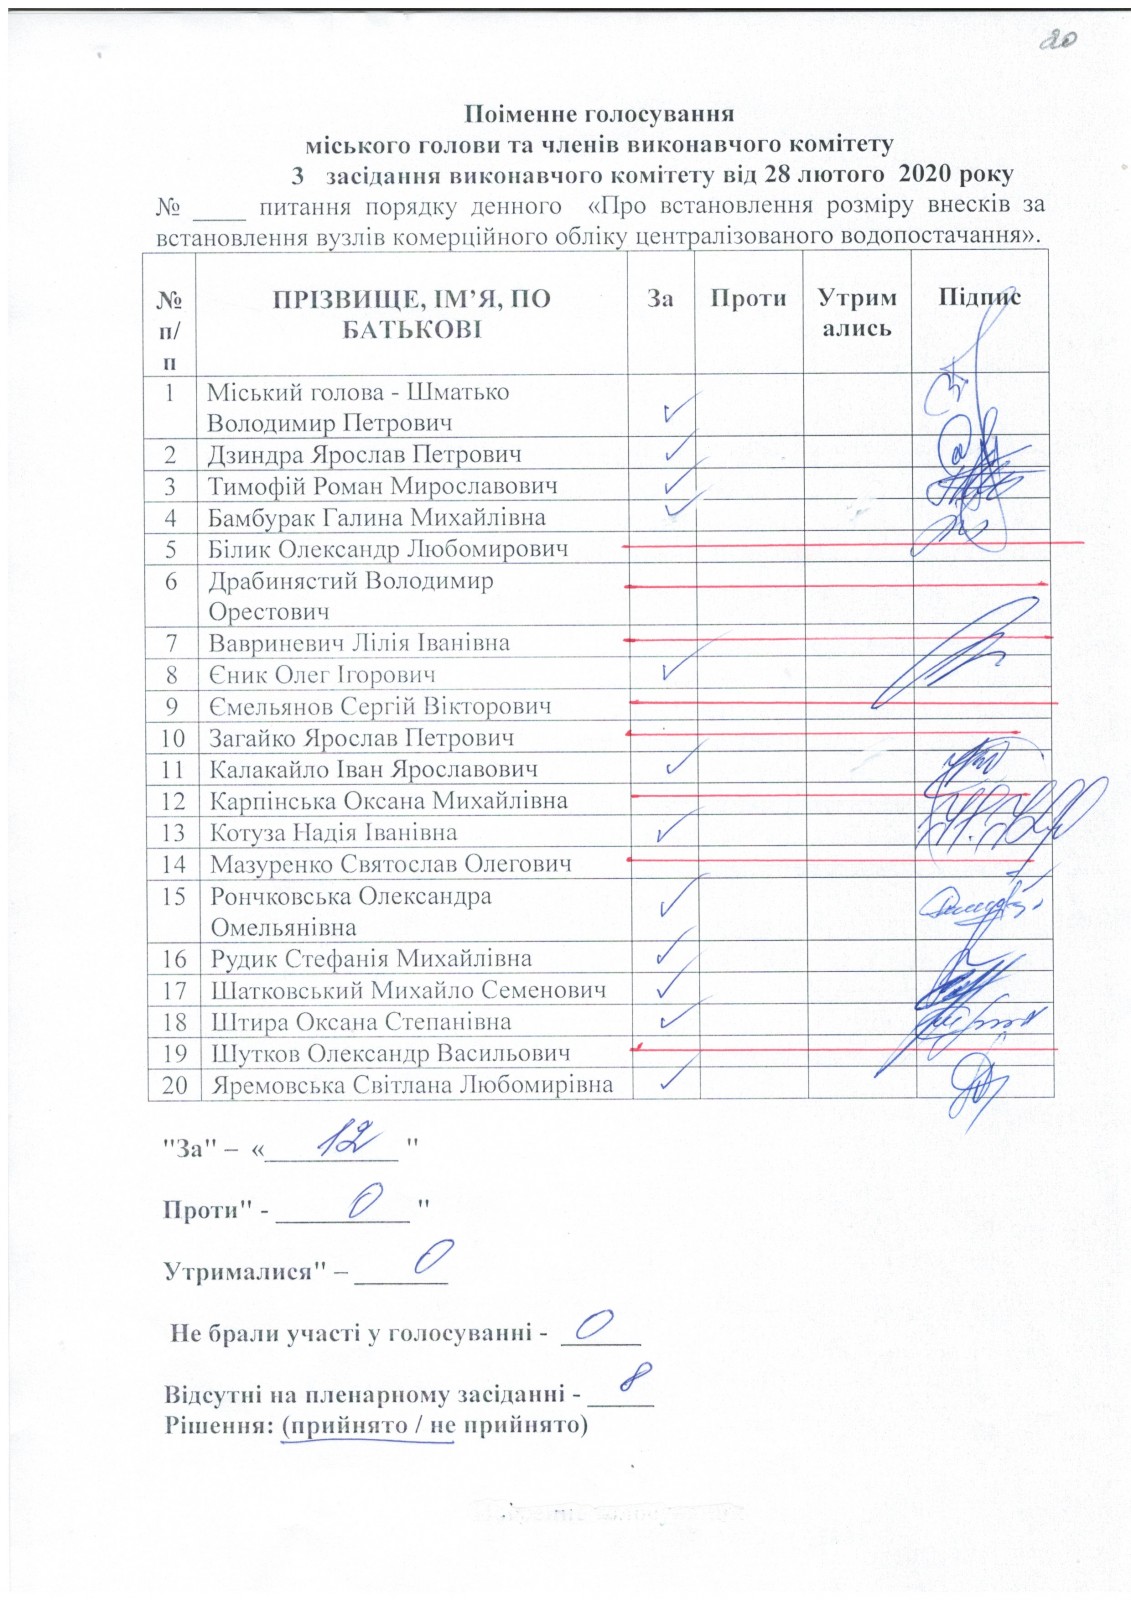 20
Поіменне голосування
міського голови та членів виконавчого комітету
3 засідання виконавчого комітету від 28 лютого 2020 року
№ ____ питання порядку денного «Про встановлення розміру внесків за
встановлення вузлів комерційного обліку централізованого водопостачання».
№ п/п ПРІЗВИЩЕ, ІМ’Я, ПО БАТЬКОВІ За Проти Утримались Підпис
1 Міський голова - Шматько
Володимир Петрович ✓
2 Дзиндра Ярослав Петрович ✓
3 Тимофій Роман Мирославович ✓
4 Бамбурак Галина Михайлівна ✓
5 Білик Олександр Любомирович
6 Драбинястий Володимир
Орестович
7 Вавриневич Лілія Іванівна
8 Єник Олег Ігорович ✓
9 Ємельянов Сергій Вікторович
10 Загайко Ярослав Петрович
11 Калакайло Іван Ярославович ✓
12 Карпінська Оксана Михайлівна
13 Котуза Надія Іванівна ✓
14 Мазуренко Святослав Олегович
15 Рончковська Олександра
Омельянівна ✓
16 Рудик Стефанія Михайлівна ✓
17 Шатковський Михайло Семенович ✓
18 Штира Оксана Степанівна ✓
19 Шутков Олександр Васильович
20 Яремовська Світлана Любомирівна ✓
"За" – « 12 "
Проти" - 0 "
Утрималися" – 0
Не брали участі у голосуванні - 0
Відсутні на пленарному засіданні - 8
Рішення: (прийнято / не прийнято)